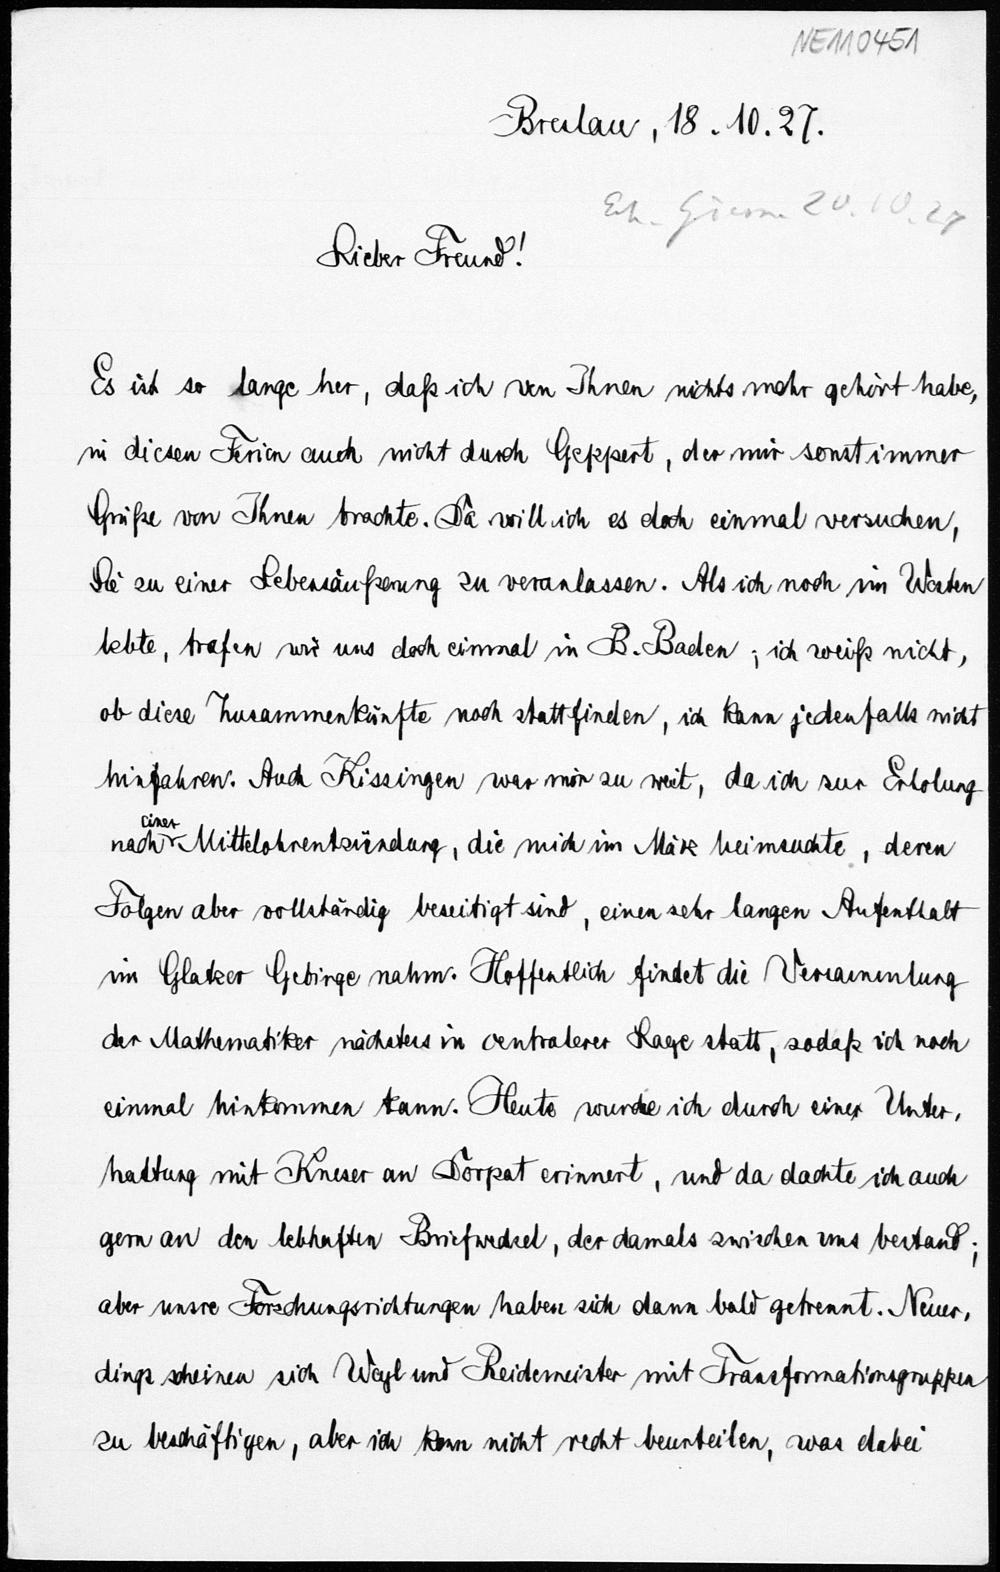 NE110451
Breslau, 18.10.27.
20.10.27
Lieber Freund!
Es ist so lange her, daß ich von Ihnen nichts mehr gehört habe,
in diesen Ferien auch nicht durch Geppert, der mir sonst immer
Grüße von Ihnen brachte. Da will ich es doch einmal versuchen,
Sie zu einer Lebensäußerung zu veranlassen. Als ich noch im Westen
lebte, trafen wir uns doch einmal in B. Baden; ich weiß nicht,
ob diese Zusammenkünfte noch stattfinden, ich kann jedenfalls nicht
hinfahren. Auch Kissingen war mir zu weit, da ich zur Erholung
nach einer Mittelohrentzündung, die mich im März heimsuchte, deren
Folgen aber vollständig beseitigt sind, einen sehr langen Aufenthalt
im Glatzer Gebirge nahm. Hoffentlich findet die Versammlung
der Mathematiker nächstens in centralerer Lage statt, sodaß ich noch
einmal hinkommen kann. Heute wurde ich durch einer Unter-
haltung mit Kneser an Dorpat erinnert, und da dachte ich auch
gern an den lebhaften Briefwechsel, der damals zwischen uns bestand;
aber unsre Forschungsrichtungen haben sich dann bald getrennt. Neuer-
dings scheinen sich Weyl und Reidemeister mit Transformationsgruppen
zu beschäftigen, aber ich kann nicht recht beurteilen, was dabei